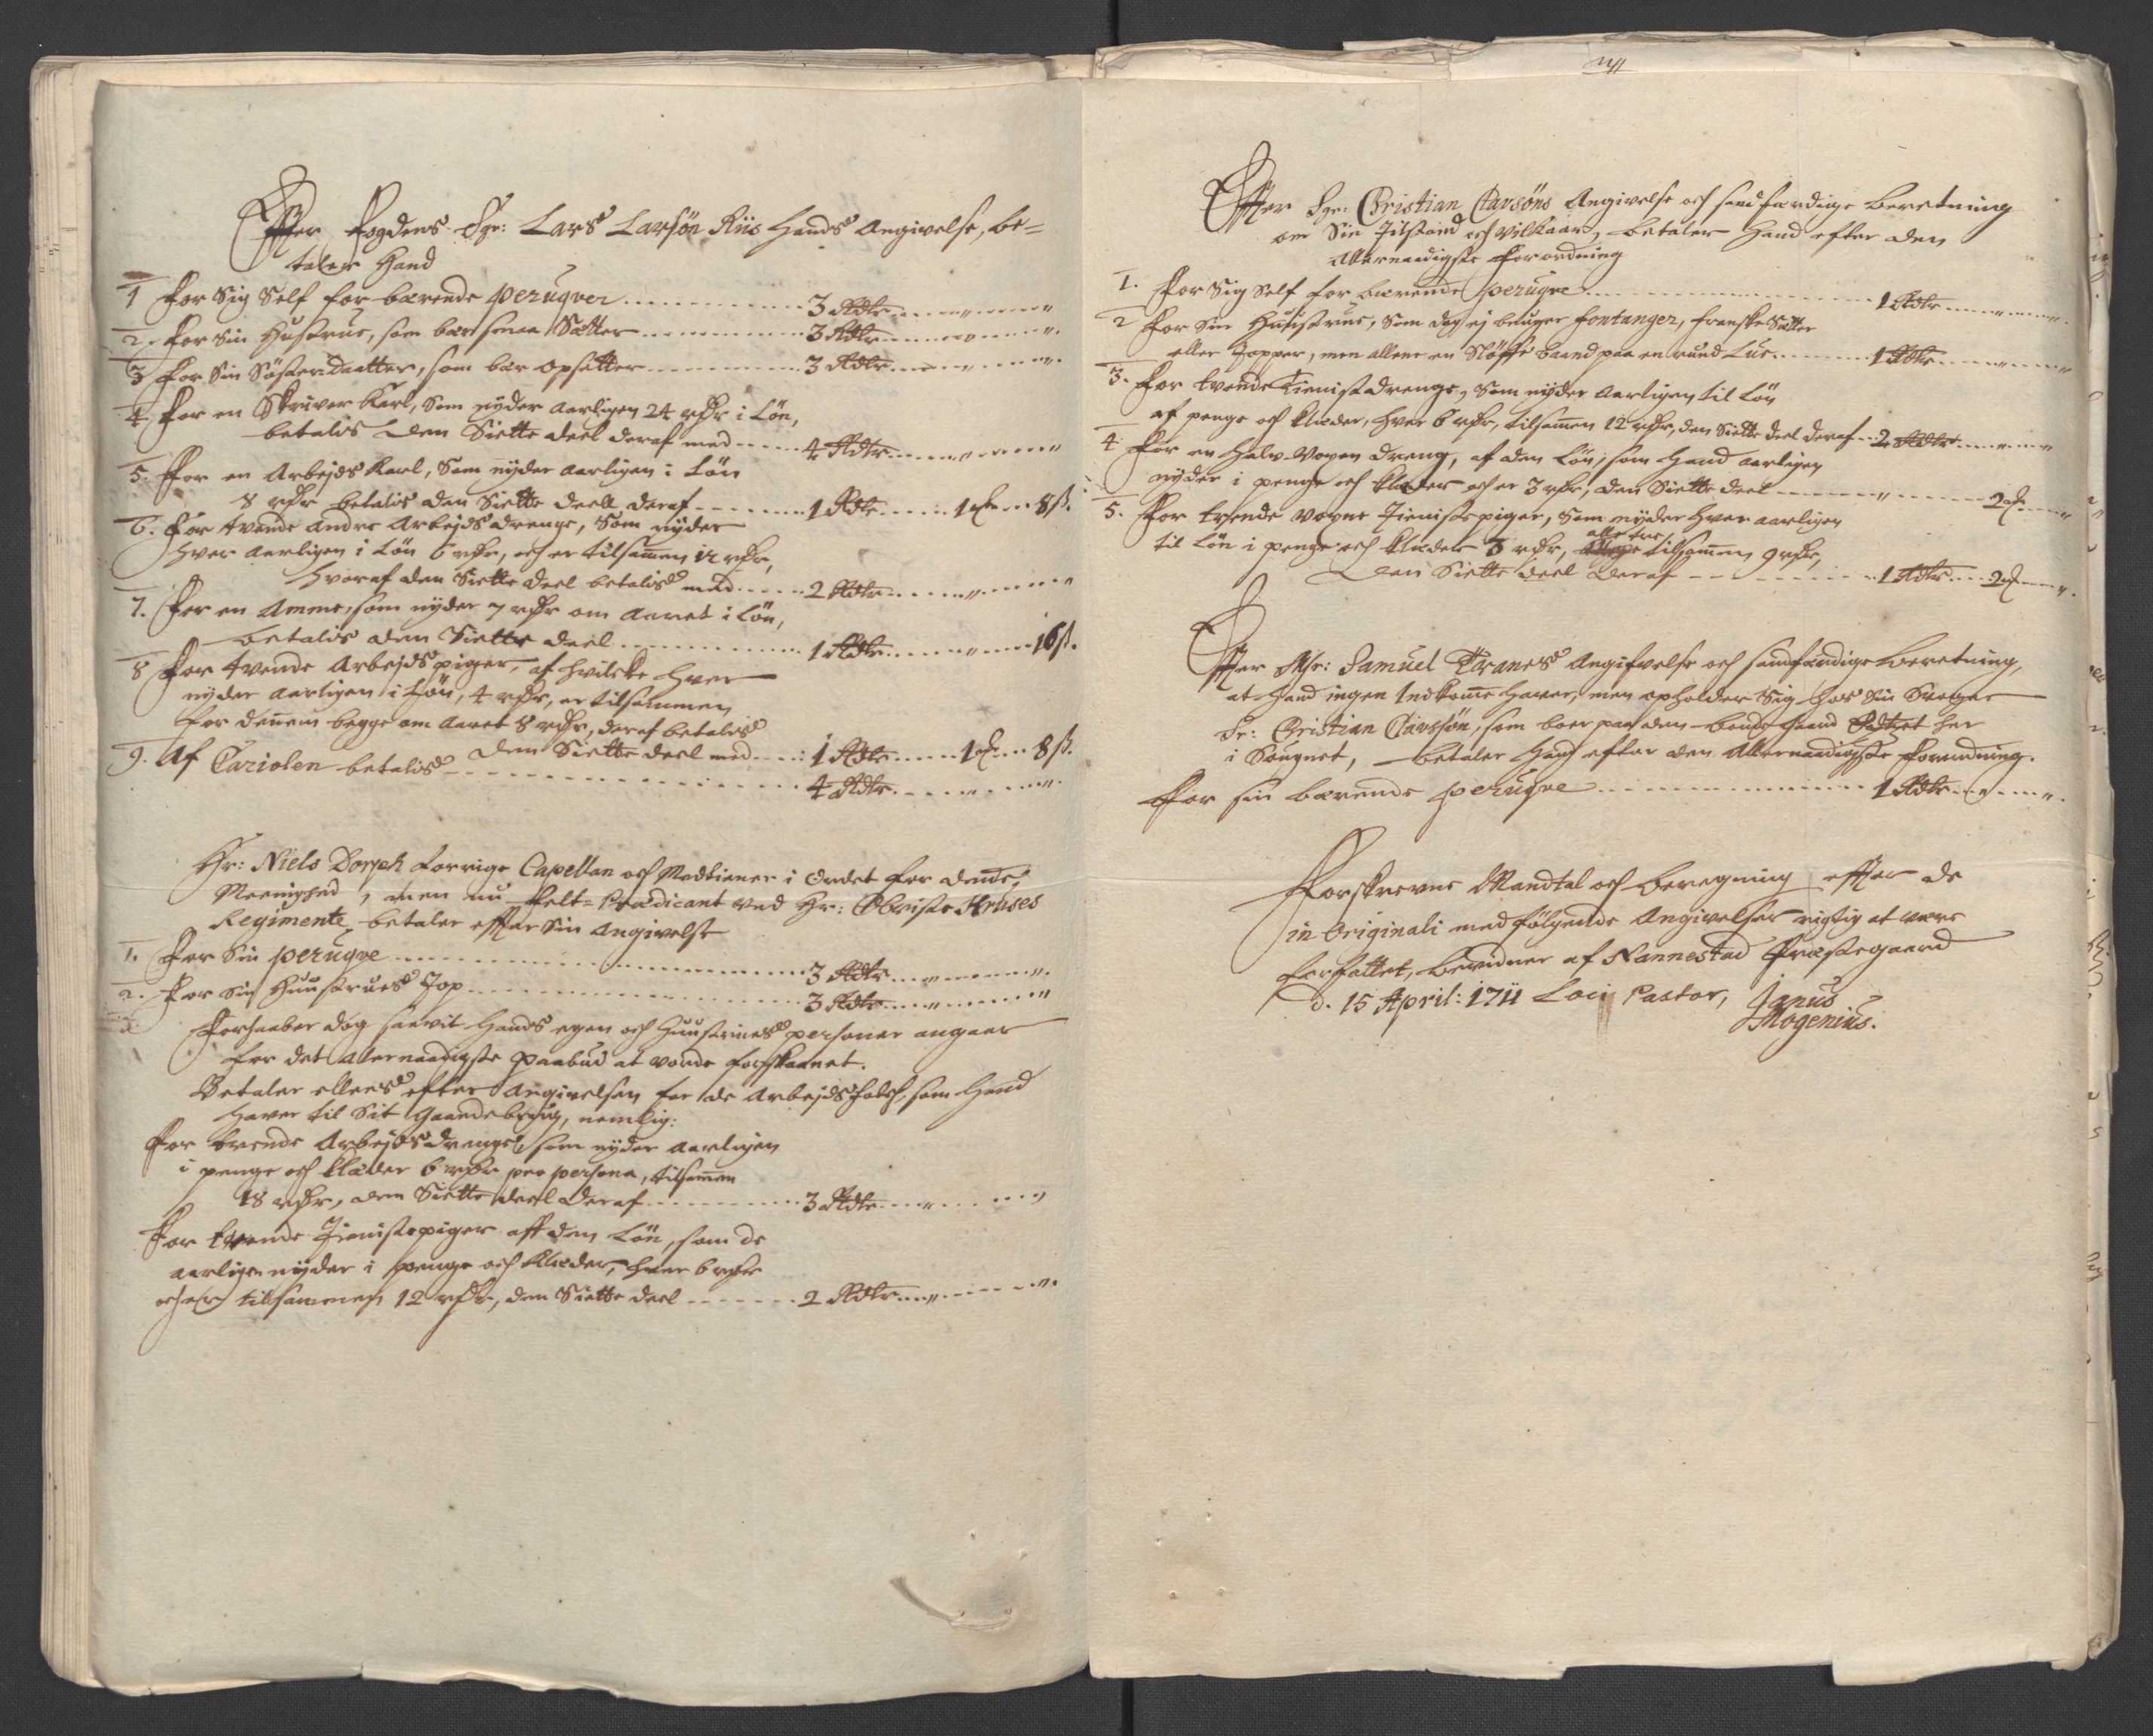 Effter Fogdens Sgr: Lars Larsøn Riis Hands Angivelse, be=
taler Hand
1 For Sig Self for bærende Peruqver 3 Rdlr „ „
2. For Sin Hustrue, som bær smaa Sætter 3 Rdlr „ „
3 For Sin Søsterdaatter, som bær opsætter 3 Rdlr „ „
4. For en Skriver Karl, Som nyder aarligen 24 rdr i Løn,
betalis den Siette deel deraf med 4 Rdlr „ „
5. For en Arbejds Karl, Som nyder aarligen i Løn
8 rdr betalis den Siette deell deraf 1 Rdlr 1 ort 8 ß.
6. For tvende andre Arbejds drenge, Som nyder
hver aarligen i Løn 6 rdr, och er tilsamen 12 rdr,
hvoraf den Siette deel betalis med 2 Rdlr „ „
7. For en Amme, som nyder 7 rdr om aaret i Løn,
betalis den Siette deel 1 Rdlr „ 16 ß.
8 For tvende Arbejds piger, af hvilcke hver
nyder aarligen i Løn, 4 rdr, er tilsammen
for dennem begge om aaret 8 rdr, deraf betalis
den Siette deel med 1 Rdlr 1 ort 8 ß.
9. Af Cariolen betalis 4 Rdlr „ „
Hr: Niels Dorph forrige Capellan och Medtiener i Ordet for denne
Meenighed, men nu Felt=Prædicant ved Hr: Obriste Kruses
Regimente, betaler effter Sin Angivelse
1. For Sin peruqve 3 Rdlr „ „
2. For Sin Huustrues Top 3 Rdlr „ „
Forhaaber dog saavit hands egen och Huustrues personer angaar
for det allernaadigste paabud at vorde forskaanet.
Betaler ellers efter Angivelsen for de Arbejdsfolch, som Hand
haver til Sit Gaardsbrug, nemlig:
For trende Arbejdsdrenge, som nyder aarligen
i penge och klæder 6 rdr pro persona, tilsamen
18 rdr, den Siette deel deraf 3 Rdlr „ „
For tvende Tienistepiger aff den Løn, som de
aarligen nyder i penge och klæder, hver 6 rdr
och er tilsammen 12 rdr, den Siette deel 2 Rdlr „ „
Effter Sgr: Christian Clavsøns Angivelse och sandfærdige beretning
om Sin Tilstand och Vilkaar, betaler Hand efter den
allernaadigste forordning
1. For Sig Self for bærende peruqve 1 Rdlr „ „
2 For Sin Huustrue, Som dog ej bruger fontanger, franske Sætter
eller Topper, men allene en Sløffe baand paa en rund Lue 1 Rdlr „ „
3. For tvende Tienistedrenge, Som nyder aarligen til Løn
af penge och klæder, hver 6 rdr, tilsamen 12 rdr, den Siette deel deraf 2 Rdlr „ „
4 For en halv-voxen dreng, af den Løn, som Hand aarligen
nyder i penge och klæder och er 3 rdr, den Siette deel „ 2 ort „
5. For trende voxne Tienistepiger, Som nyder hver aarligen
til Løn i penge och klæder 3 rdr, alle tre tilsamen 9 rdr,
den Siette deel deraf 1 Rdlr 2 ort „
Effter Mr: Samuel Kranes Angifvelse och sandfærdige beretning,
at Hand ingen Indkomme haver, men opholder Sig hos Sin Svoger
Sr: Christian Clavsøn, som boer paa den bondegaard her
i Sougnet, betaler Hand efter den Allernaadigste forordning.
For sin bærende peruqve 1 Rdlr „ „
Forskrevne Mandtal och beregning effter de
in Originali medfølgende Angivelser rigtig at være
forfattet, bevidner af Nannestad Præstegaard
d. 15 April: 1711 Loci Pastor, Janus
Mogenius.